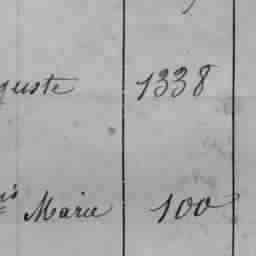 guste 1338
is Marie 100